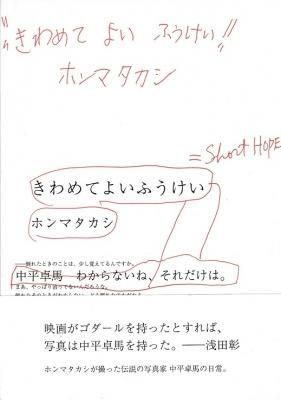 "きわめて よい ふうけい"
ホンマタカシ
= Short HOPE
きわめてよいふうけい
ホンマタカシ
──倒れたときのことは、少し覚えてるんですか。
中平卓馬 わからないね、それだけは。
まあ、やっぱり治ってないんだろうな。
映画がゴダールを持ったとすれば、
写真は中平卓馬を持った。──浅田彰
ホンマタカシが撮った伝説の写真家 中平卓馬の日常。